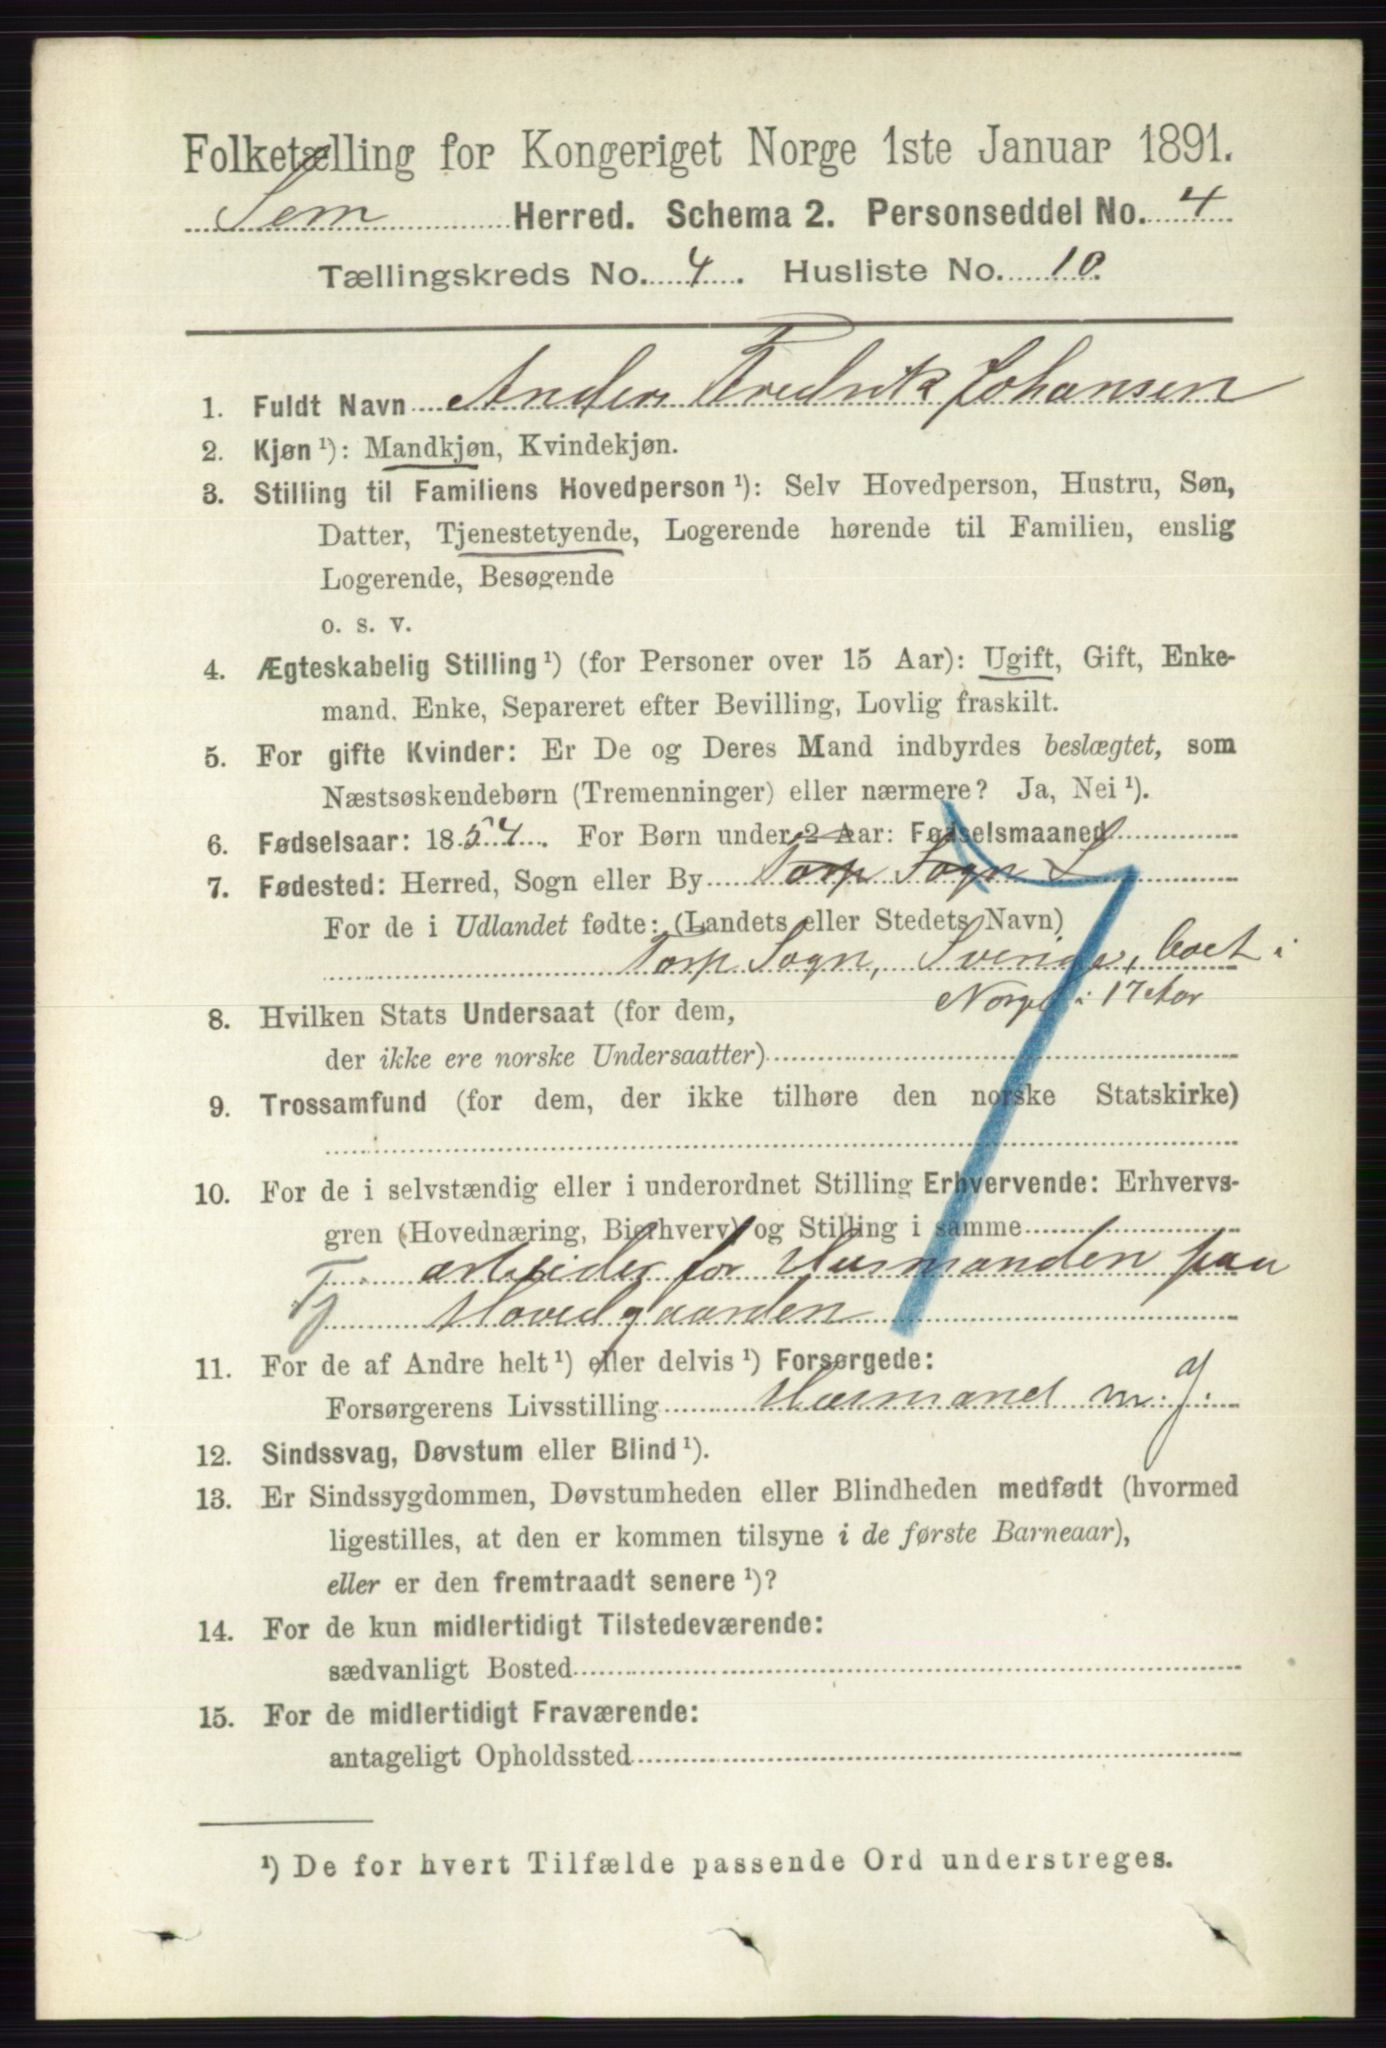 Folketælling for Kongeriget Norge 1ste Januar 1891.
Sem Herred. Schema 2. Personseddel No. 4
Tællingskreds No. 4. Husliste No. 10.
1. Fuldt Navn Anders Fredrik Johansen
2. Kjøn ¹): Mandkjøn, Kvindekjøn.
3. Stilling til Familiens Hovedperson ¹): Selv Hovedperson, Hustru, Søn,
Datter, Tjenestetyende, Logerende hørende til Familien, enslig
Logerende, Besøgende
o. s. v.
4. Ægteskabelig Stilling ¹) (for Personer over 15 Aar): Ugift, Gift, Enke-
mand, Enke, Separeret efter Bevilling, Lovlig fraskilt.
5. For gifte Kvinder: Er De og Deres Mand indbyrdes beslægtet, som
Næstsøskendebørn (Tremenninger) eller nærmere? Ja, Nei ¹).
6. Fødselsaar: 1854. For Børn under 2 Aar: Fødselsmaaned
7. Fødested: Herred, Sogn eller By Torp Sogn
For de i Udlandet fødte: (Landets eller Stedets Navn)
Torp Sogn, Sverige, boet i
Norge i 17 Aar
8. Hvilken Stats Undersaat (for dem,
der ikke ere norske Undersaatter)
9. Trossamfund (for dem, der ikke tilhøre den norske Statskirke)
10. For de i selvstændig eller i underordnet Stilling Erhvervende: Erhvervs-
gren (Hovednæring, Bierhverv) og Stilling i samme
Tj. arbeider for Husmanden paa
Hovedgaarden
11. For de af Andre helt ¹) eller delvis ¹) Forsørgede:
Forsørgerens Livsstilling Husmand m. J.
12. Sindssvag, Døvstum eller Blind ¹).
13. Er Sindssygdommen, Døvstumheden eller Blindheden medfødt (hvormed
ligestilles, at den er kommen tilsyne i de første Barneaar),
eller er den fremtraadt senere ¹)?
14. For de kun midlertidigt Tilstedeværende:
sædvanligt Bosted
15. For de midlertidigt Fraværende:
antageligt Opholdssted
¹) De for hvert Tilfælde passende Ord understreges.